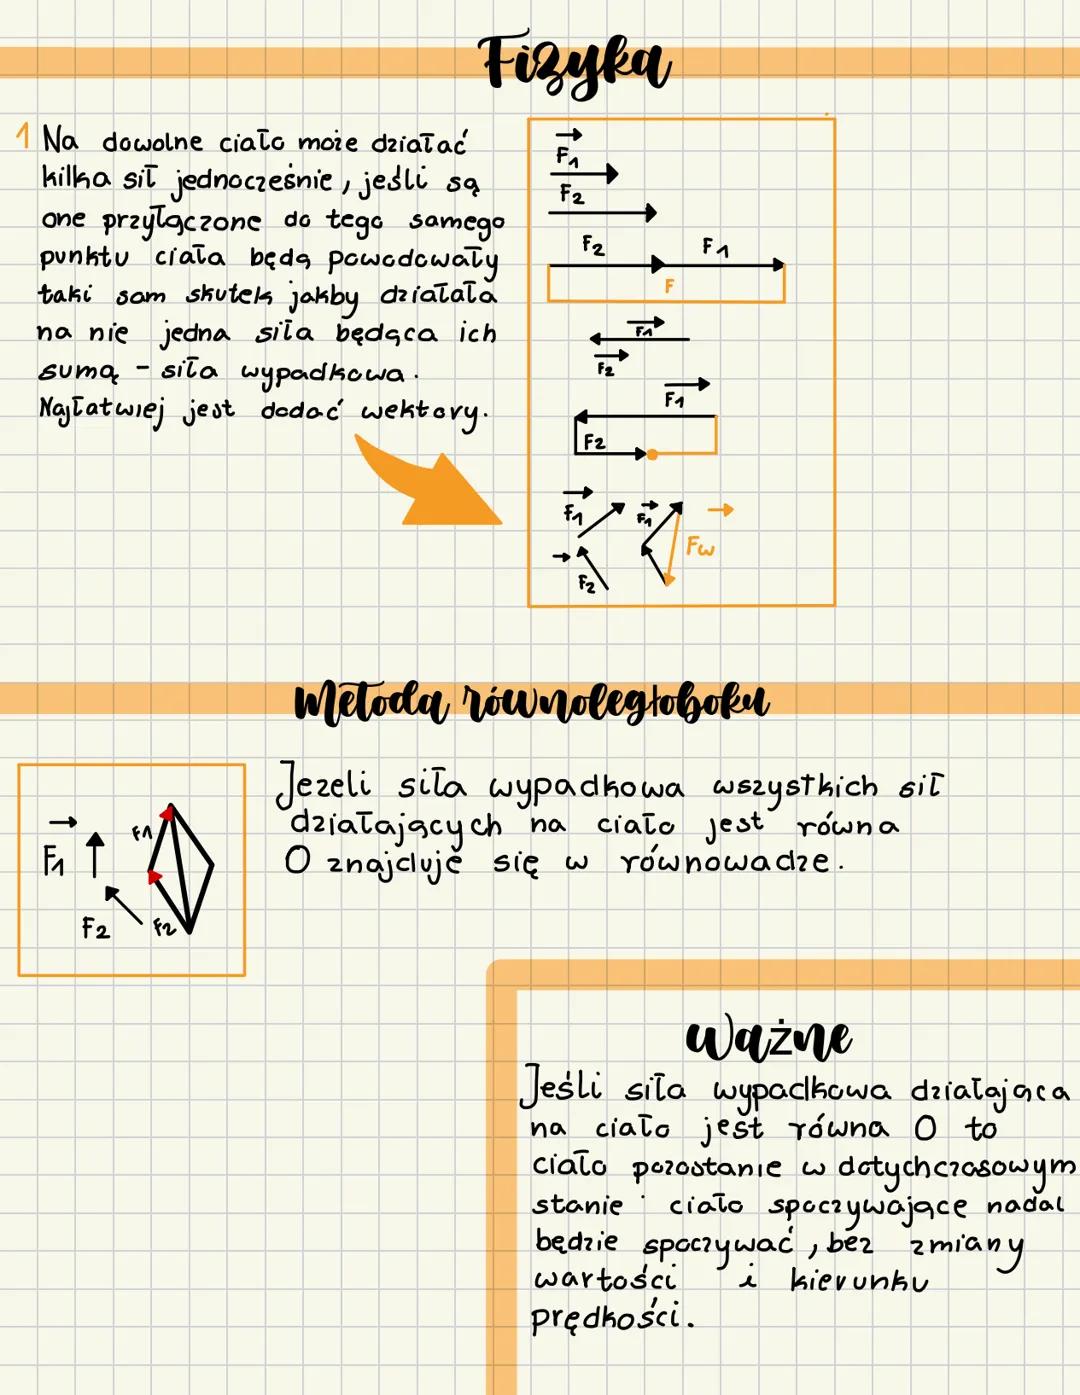 Fizyka
1 Na dowolne ciało może działać
kilka sił jednocześnie, jeśli są
one przyłączone do tego samego
punktu ciała będą powodowały
taki sam skutek jakby działała
na nie jedna siła będąca ich
sumą - siła wypadkowa.
Najłatwiej jest dodać wektory.
F1
F2
F2 F1
F
F1
F2
F1
F2
F1 F1
Fw
F2
Metoda równoległoboku
F1 F1
F2 F2
Jeżeli siła wypadkowa wszystkich sił
działających na ciało jest równa
0 znajduje się w równowadze.
Ważne
Jeśli siła wypadkowa działająca
na ciało jest równa 0 to
ciało pozostanie w dotychczasowym
stanie ciało spoczywające nadal
będzie spoczywać, bez zmiany
wartości i kierunku
prędkości.